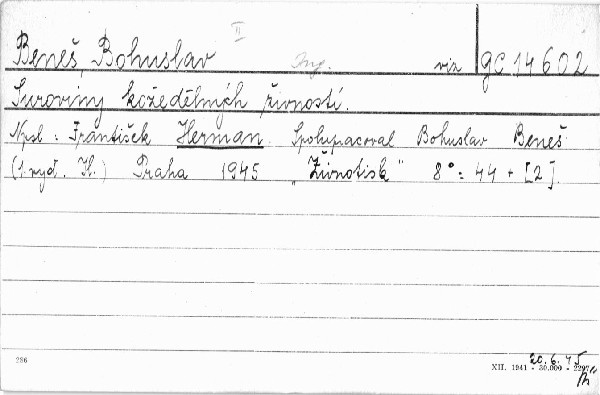 Beneš, Bohuslav II Ing. viz gC 14602
Suroviny kožedělných živností.
Npsl: František Herman. Spolupracoval Bohuslav Beneš.
(1. vyd. Il.) Praha 1945 „Živnotisk" 8°: 44 + [2].
20.6.45
286 XII. 1941 - 30.000 - 2297